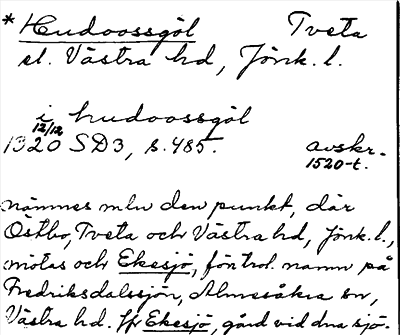 * Hudoossgöl Tveta
el. Västra hd, Jönk. l.
i hudoossgöl
12/12
1320 SD3, s. 485. avskr.
1520-t.
nämnes mlu den punkt, där
Östbo, Tveta och Västra hd, Jönk. l.,
mötas och Ekesjö, förtrol. namn på
Fredriksdalssjön, Almesåkra sn,
Västra hd. Jfr Ekesjö, gård vid dna sjö.